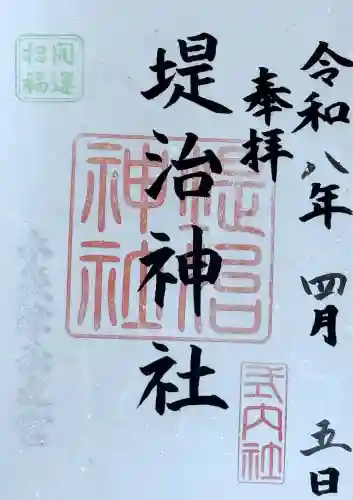 令和八年 四月 五日
奉拝
堤治神社
堤治神社
式内社
開運招福